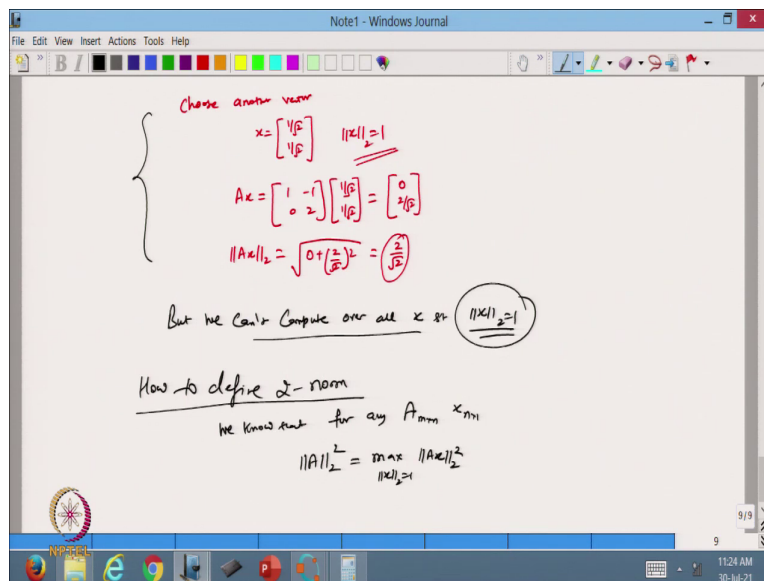 Note1 - Windows Journal
File Edit View Insert Actions Tools Help
B I
Choose another vector
x = [1/√2 1/√2] ||x||₂ = 1
Ax = [1 -1 0 2] [1/√2 1/√2] = [0 2/√2]
||Ax||₂ = √(0 + (2/√2)²) = 2/√2
But we can't compute over all x st ||x||₂ = 1
How to define 2-norm
We know that for any A m×n x n×1
||A||₂² = max ||Ax||₂²
||x||₂=1
9/9
9
NPTEL
11:24 AM
30-Jul-21